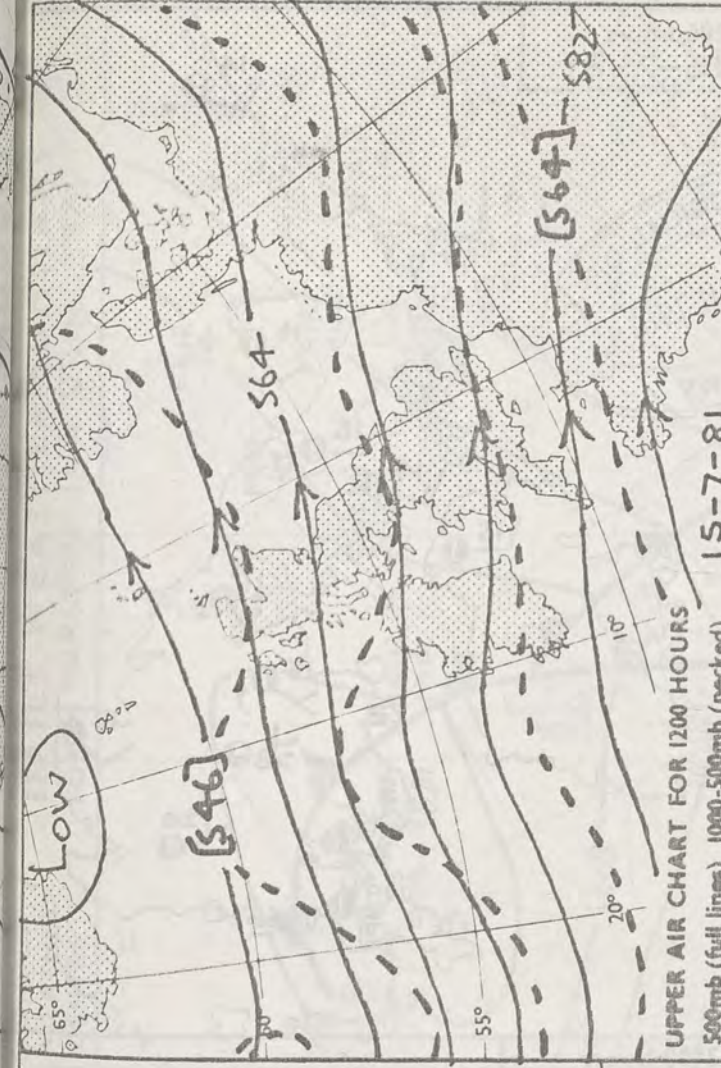 LOW
65°
[546]
564
55°
20°
10°
[564]
582
UPPER AIR CHART FOR 1200 HOURS 15-7-81
500mb (full lines) 1000-500mb (pecked)